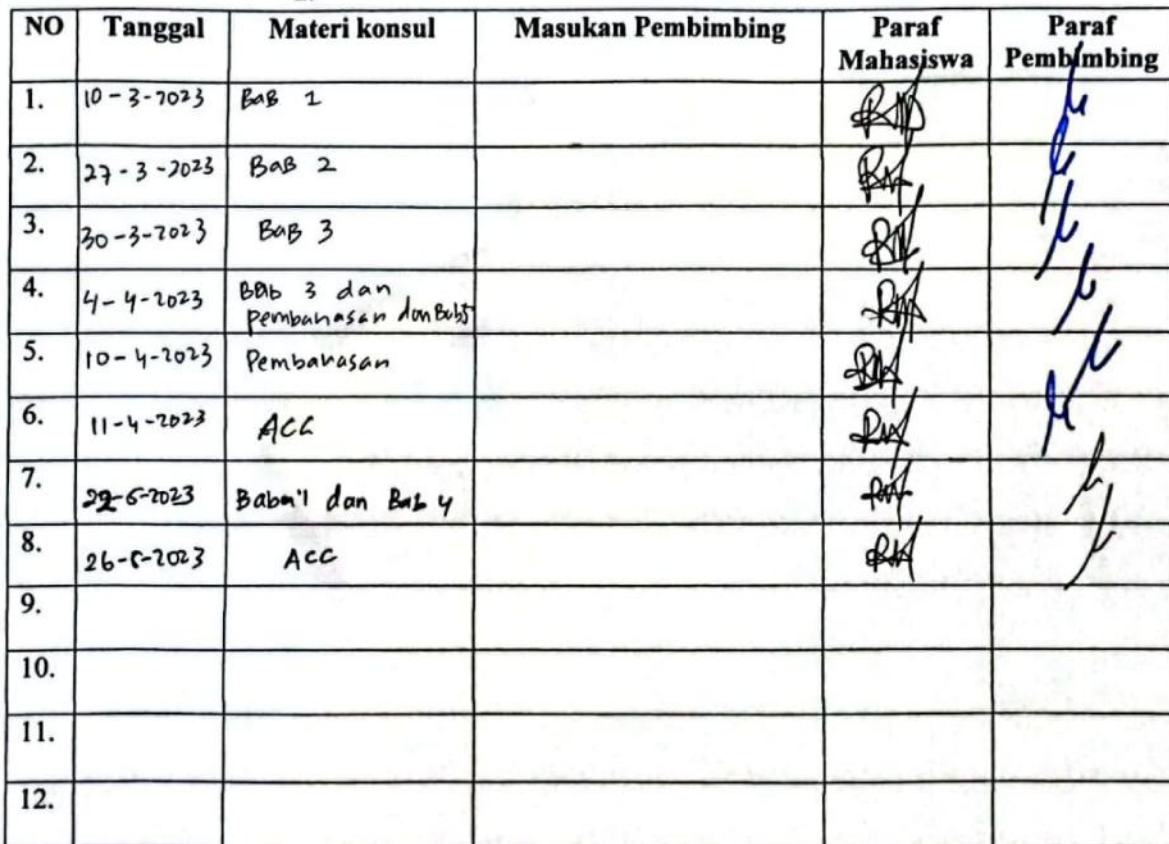 NO Tanggal Materi konsul Masukan Pembimbing Paraf Mahasiswa Paraf Pembimbing
1. 10-3-2023 BaB 1
2. 27-3-2023 BaB 2
3. 30-3-2023 BaB 3
4. 4-4-2023 Bab 3 dan
pembahasan dan Bab5
5. 10-4-2023 Pembahasan
6. 11-4-2023 ACC
7. dan Bab 4
8. ACC
9.
10.
11.
12.